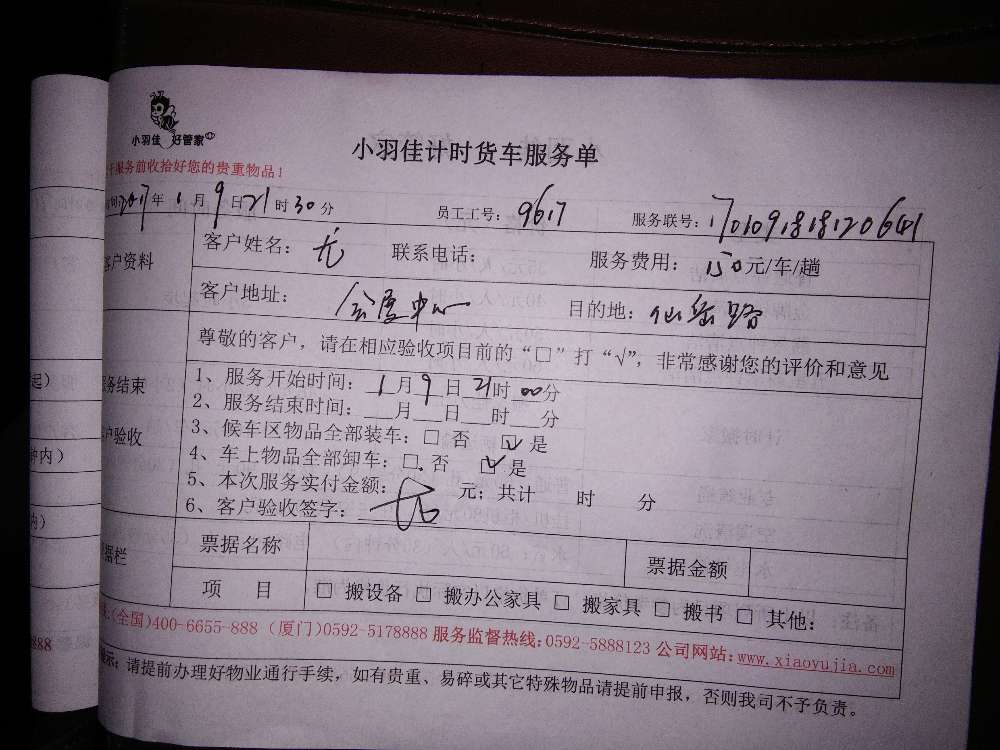 小羽佳 好管家
小羽佳计时货车服务单
服务前收拾好您的贵重物品!
2017年1月9日21时30分 员工工号: 9617 服务联号: 1701091818120641
客户资料 客户姓名: 尤 联系电话: 服务费用: 150元/车/趟
客户地址: 会展中心 目的地: 仙岳路
尊敬的客户,请在相应验收项目前的“□”打“√”,非常感谢您的评价和意见
务结束
户验收
1、服务开始时间: 1月9日21时00分
2、服务结束时间: 月 日 时 分
3、候车区物品全部装车: □ 否 ☑ 是
4、车上物品全部卸车: □ 否 ☑ 是
5、本次服务实付金额: 元; 共计 时 分
6、客户验收签字:
据栏 票据名称 票据金额
项 目 □ 搬设备 □ 搬办公家具 □ 搬家具 □ 搬书 □ 其他:
(全国)400-6655-888 (厦门)0592-5178888 服务监督热线:0592-5888123 公司网站: www.xiaoyujia.com
示: 请提前办理好物业通行手续,如有贵重、易碎或其它特殊物品请提前申报,否则我司不予负责。
起)
钟内)
内)
888